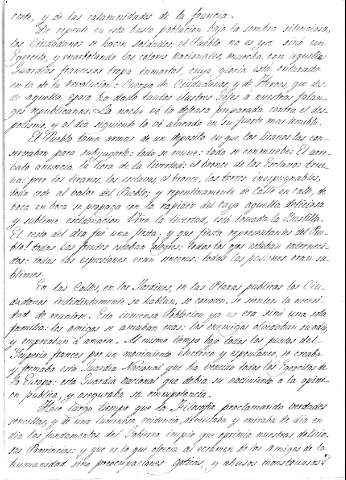 corte, y de las calamidades de la francia.
De repente en esta basta poblacion bajo la sombra silenciosa,
los Ciudadanos se hacen soldados: el Pueblo no es ya sino un
Exercito, y enarbolando los colores Nacionales, marcha con aquellas
Guardias francesas tropa inmortal cuya gloria está
de la revolucion: Cuerpo de Ciudadanos y de Heroes que des-
de aquella epoca ha dado tantos ilustres Gefes a nuestras falan-
ges republicanas. La noche ve la defensa preparada contra el des-
potismo y al dia siguiente lo ve atacado en su fuerte mas
El Pueblo toma armas de un deposito en que los tiranos las con-
servaban para subyugarlo: todo se mueve: todo se conmueve. El
anuncia la hora de la libertad: el bronce de los Esclavos true-
na; pero los tiranos, los esclavos, el bronce, las torres inexpugnables,
todo cede al valor del Pueblo; y repentinamente de Calle en calle, de
boca en boca se propaga con la rapidez del rayo aquella deliciosa
y sublime exclamacion Viva la libertad, está tomada la Bastilla.
El resto del dia fué una fiesta; y que fiesta representantes del Pue-
blo! todas las frentes estaban alegres: todos los ojos estaban enterneci-
dos: todas las expresiones eran sinceras: todas las pasiones eran su-
blimes.
En las Calles, en los Jardines, en las Plazas publicas los Ciu-
dadanos indistintamente se hablan, se conocen, se sienten la necesi-
dad de reunirse. Esta inmensa Poblacion ya no era sino una sola
familia: los amigos se amaban mas: los enemigos olvidaban su odio,
y empezaban a amarse. Al mismo tiempo bajo todos los puntos del
Imperio frances por un movimiento electrico y espontaneo, se creaba
y formaba esta Guardia Nacional que ha vencido todos los Exercitos de
la Europa: esta Guardia Nacional que debia su nacimiento a la opini-
on publica, y aseguraba su omnipotencia.
Hace largo tiempo que la Filosofia proclamando verdades
sencillas, y de una luminosa evidencia, desnudaba y minaba de dia en
dia los fundamentos del Gobierno impio que oprimia nuestras delicio-
sas Provincias: y que es lo que ofrecia al examen de los amigos de la
humanidad sino preocupaciones goticas, y abusos monstruosos?